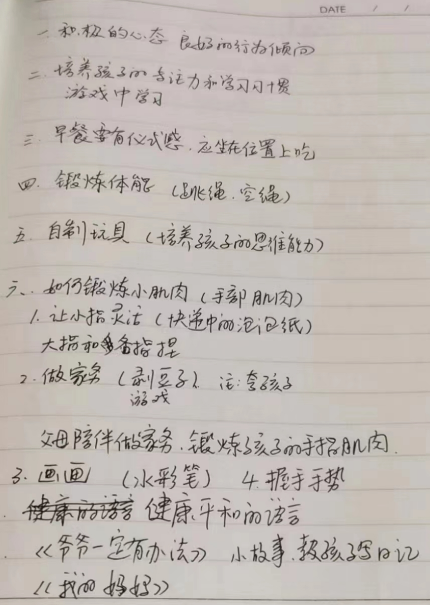 DATE / /
一 积极的心态 良好的行为倾向
二. 培养孩子的专注力和学习习惯
游戏中学习
三. 早餐要有仪式感. 应坐在位置上吃
四. 锻炼体能 (跳绳. 空绳)
五. 自制玩具 (培养孩子的思维能力)
六. 如何锻炼小肌肉 (手部肌肉)
1. 让小指灵活 (快递中的泡泡纸)
大指和食指捏
2. 做家务 (剥豆子). 注: 孩子
游戏
父母陪伴做家务. 锻炼孩子的手指肌肉.
3. 画画 (水彩笔) 4. 握手手势
健康的语言 健康平和的语言
《爷爷一定有办法》 小故事. 教孩子写日记
《我的妈妈》